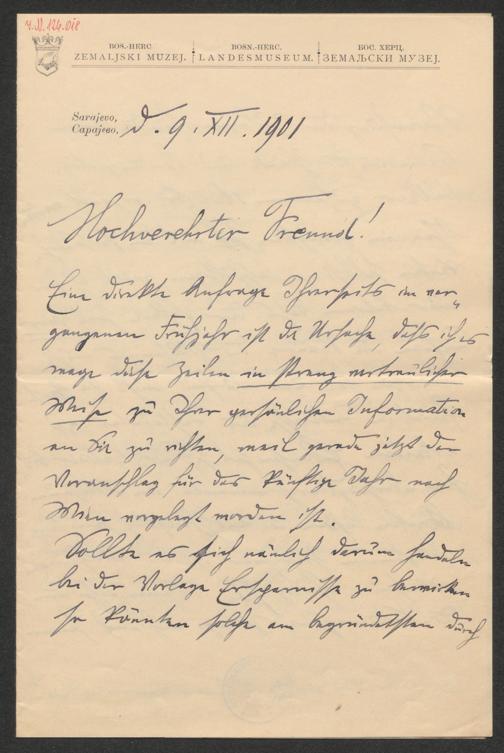 BOS.-HERC. BOSN.-HERC. БОС. ХЕРЦ.
ZEMALJSKI MUZEJ. LANDESMUSEUM. ЗЕМАЉСКИ МУЗЕЈ.
Sarajevo,
Сарајево, d. 9. XII. 1901
Hochverehrter Freund!
Eine direkte Anfrage Ihrerseits im ver„
gangenen Frühjahr ist die Ursache, daß ich es
wage diese Zeilen in streng vertraulicher
Weise zu Ihrer persönlichen Information
an Sie zu richten, weil gerade jetzt der
Voranschlag für das künftige Jahr nach
Wien vorgelegt worden ist.
Sollte es sich nämlich darum handeln
bei der Vorlage Ersparnisse zu bewirken
so könnten solche am begründetsten durch